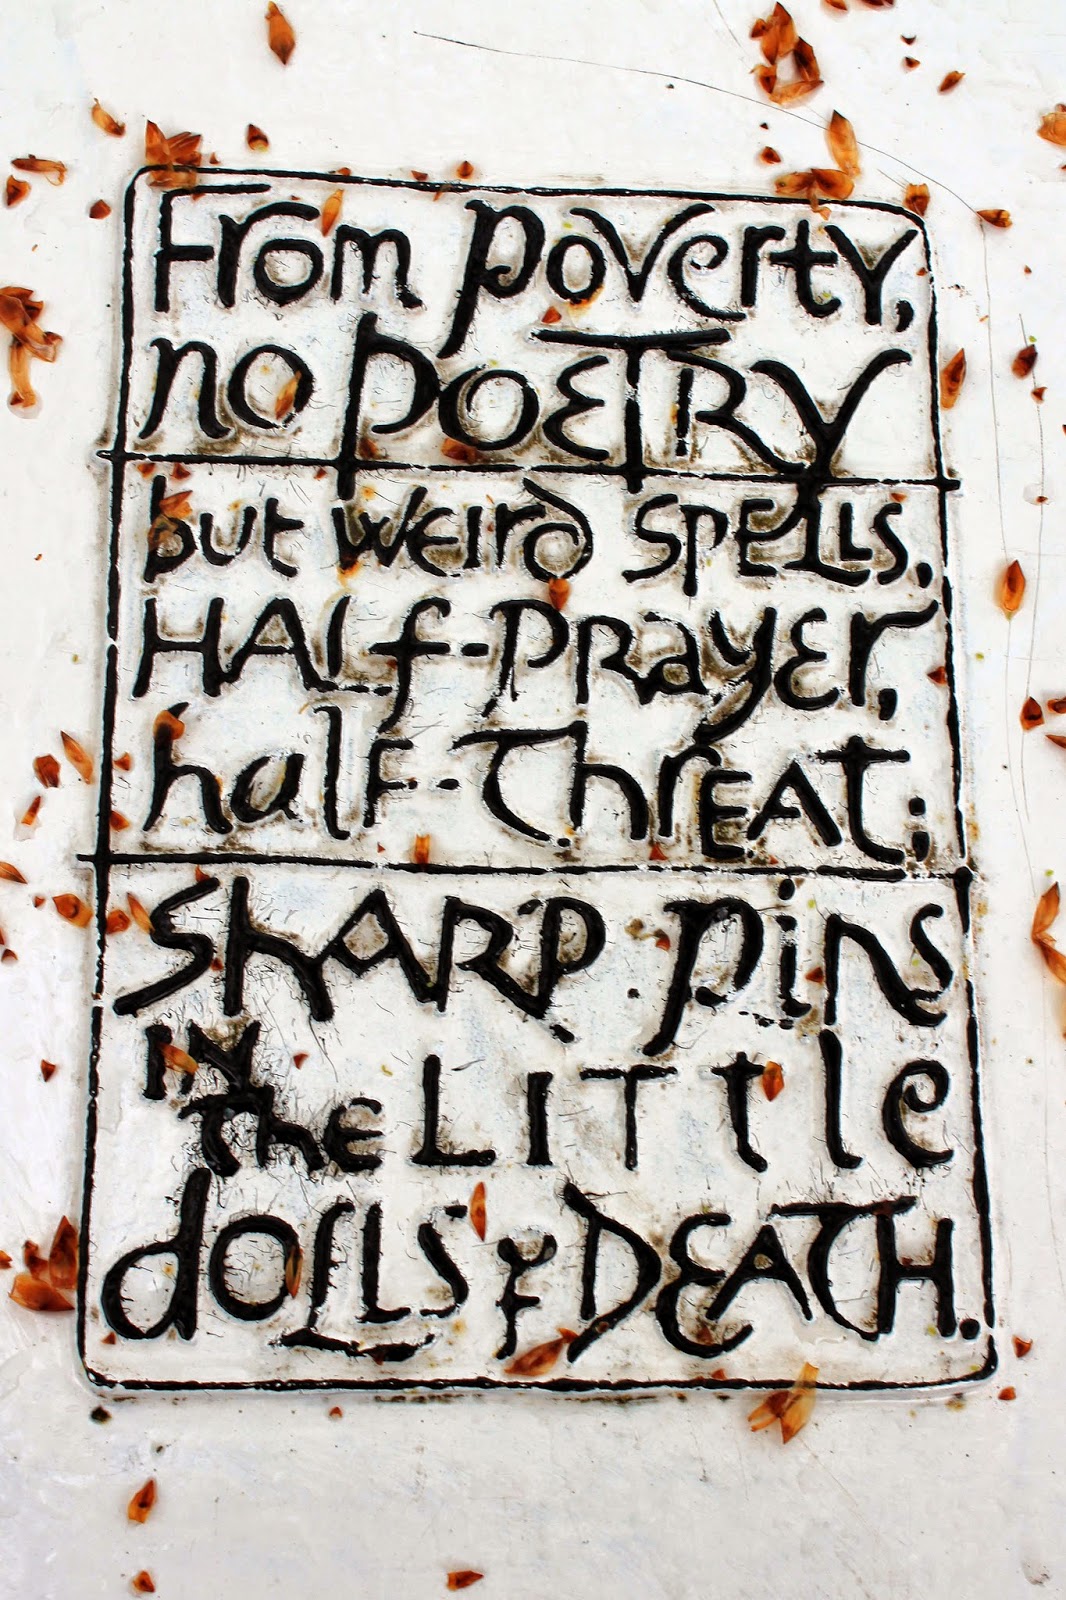 From poverty,
no POETRY
but weird spells,
HALf-PRayer,
half-ThrEAT;
ShARP pins
IN the LITTle
dOLLS of DEATH.